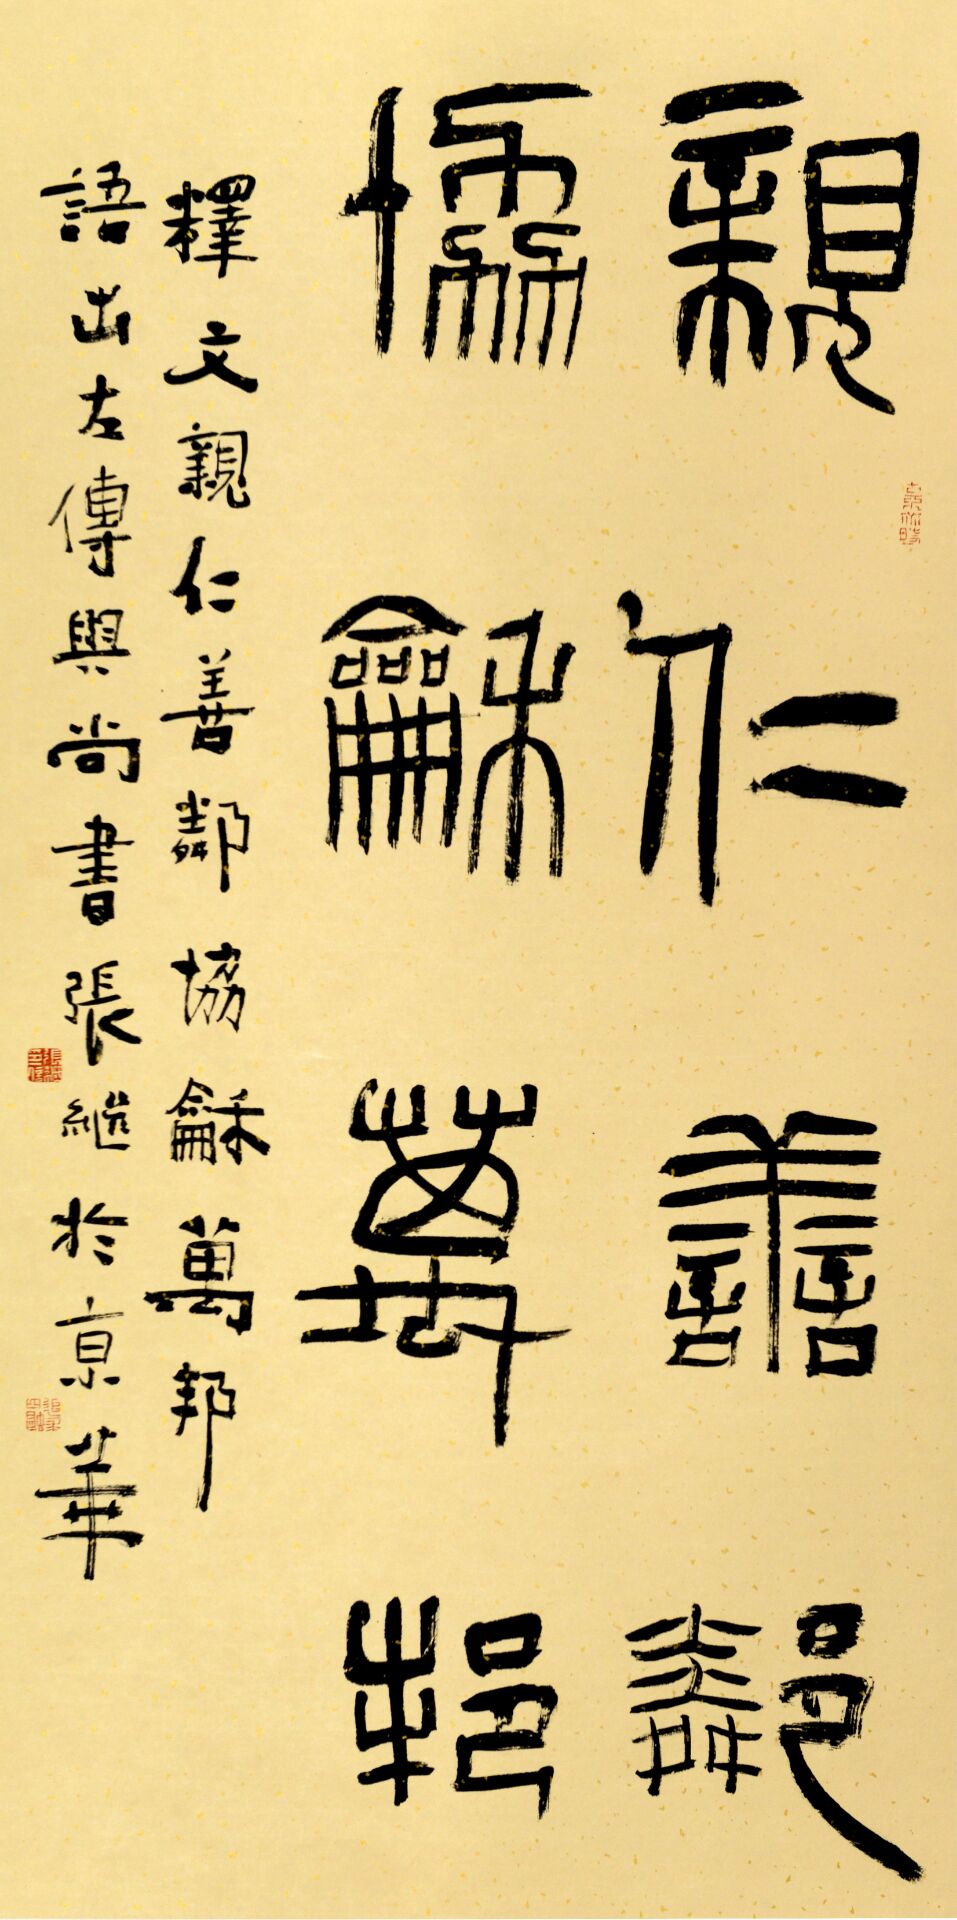 親仁善鄰
協龢萬邦
釋文親仁善鄰協龢萬邦
語出左傳與尚書張繼於京華